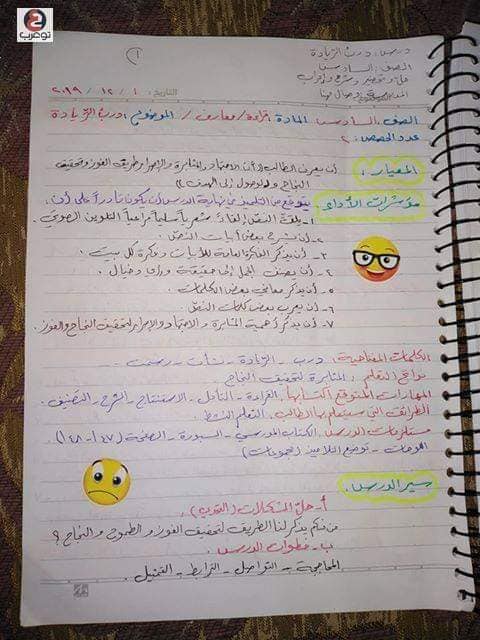 توعرب
١
درس: درب الرّيادة
الصف: السادس
حل وتحضير وشرح وإعراب
المدرسة: وصال مهنا
التاريخ: ١ / ١٢ / ٢٠١٩
الصف: السادس المادة: قراءة / معارف / الموضوع: درب الرّيادة
عدد الحصص: ٢
المعيار: أن يعرف الطالب أن الاجتهاد والمثابرة والإصرار طريق الفوز وتحقيق
النجاح والوصول إلى الهدف
مؤشرات الأداء: يتوقع من التلميذ في نهاية الدرس أن يكون قادراً على أن:
١- يلقي النصّ إلقاءً شعرياً سليماً مراعياً التلوين الصوتي
٢- أن يشرح بعض أبيات النصّ.
٣- أن يذكر الفكرة العامة للأبيات وفكرة كل بيت.
٤- أن يصنف الجمل إلى حقيقة ورأي وخيال.
٥- أن يذكر معاني بعض الكلمات.
٦- أن يعرب بعض كلمات النصّ.
٧- أن يذكر أهمية المثابرة والاجتهاد والإصرار لتحقيق النجاح والفوز.
الكلمات المفتاحية: درب - الرّيادة - نشأت - رسمت
نواتج التعلم: المثابرة لتحقيق النجاح
المهارات المتوقع اكتسابها: القراءة - التأمل - الاستنتاج - الشرح - التصنيف.
الطرائق التي سيتعلم بها الطالب: التعلم النشط
مستلزمات الدرس: الكتاب المدرسي - السبورة - الصفحة (١٤٧-١٤٨)
اللوحات - توضيع التلاميذ (مجموعات)
سير الدرس:
أ- حلّ المشكلات (التحدي):
من منكم يذكر لنا الطريق لتحقيق الفوز والطموح والنجاح؟
ب- خطوات الدرس:
المحاججة - التواصل - الترابط - التمثيل.